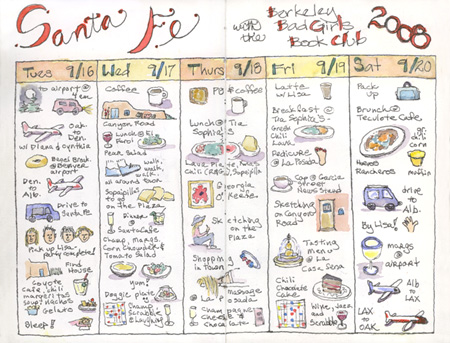 Santa Fe
with the
Berkeley
Bad Girls
Book Club
2008
Tues 9/16
to airport @
4 am
Oak. to
Den.
w/ Diana & Cynthia
Bagel Break
@ Denver
airport
Den. to
Alb.
Drive to
Santa Fe
Pick up Lisa-
party complete!
Find
House
Coyote
Cafe, chili
margaritas
Gelato
Sleep!!
Wed 9/17
Coffee
Canyon Road
Lunch @ El
Farol
Pear Salad
Walk,
walk,
walk
Sophia's
to go
on the
Plaza
Dinner @
SantaCafe
Champ, margs,
Corn Chowder &
Tomato Salad
Yum!
Doggie plate
Champ,
Scrabble
& Laughing
Thurs 9/18
PB & Coffee
Lunch @ Tia
Sophia's
Chili
Sopapillas
Georgia
O'Keefe
Sketching
on the
Plaza
Shopping
in town
massage
@ La Posada
Champagne
cheese &
chocolate
Fri 9/19
Latte
w/ Lisa
Breakfast @
Tia Sophia's
Green
Chili
Pedicure
@ La Posada
Cap @ Garcia
Street
News Stand
Sketching
on Canyon
Road
Tasting
Menu @
La
Casa Sena
Chili
Chocolate
Cake
Wine, Jazz
and
Scrabble
Sat 9/20
Pack
up
Brunch @
Tecolote Cafe
gr. chili
corn
muffin
Huevos
Rancheros
drive
to
Alb.
Bye Lisa!
margs
@
airport
Alb
to
LAX
LAX
to
OAK.